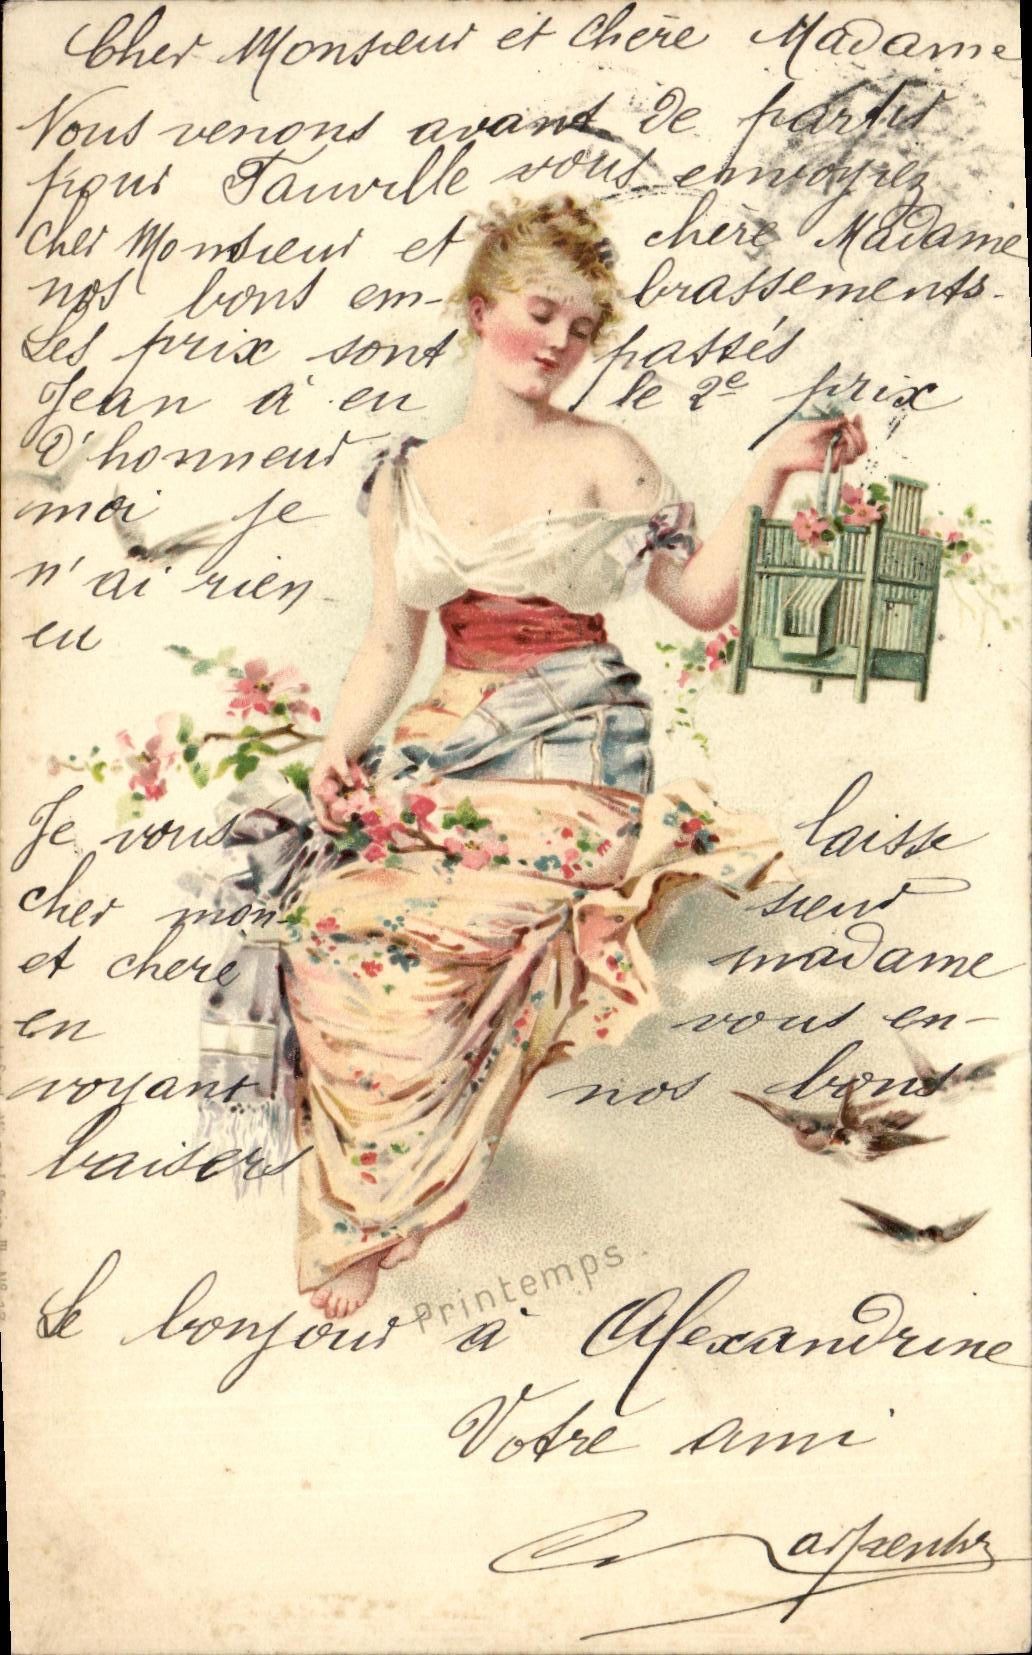 Cher Monsieur et Chère Madame
Nous venons avant de partir
pour Tanville vous envoyrez
cher Monsieur et chère Madame
nos bons em- brassements.
Les prix sont passés
Jean à eu le 2e prix
D'honneur
moi je
n'ai rien
eu
Je vous laisse
cher mon- sieur
et chere madame
en vous en-
voyant nos bons
baisers
Printemps.
Le bonjour à Alexandrine
Votre ami